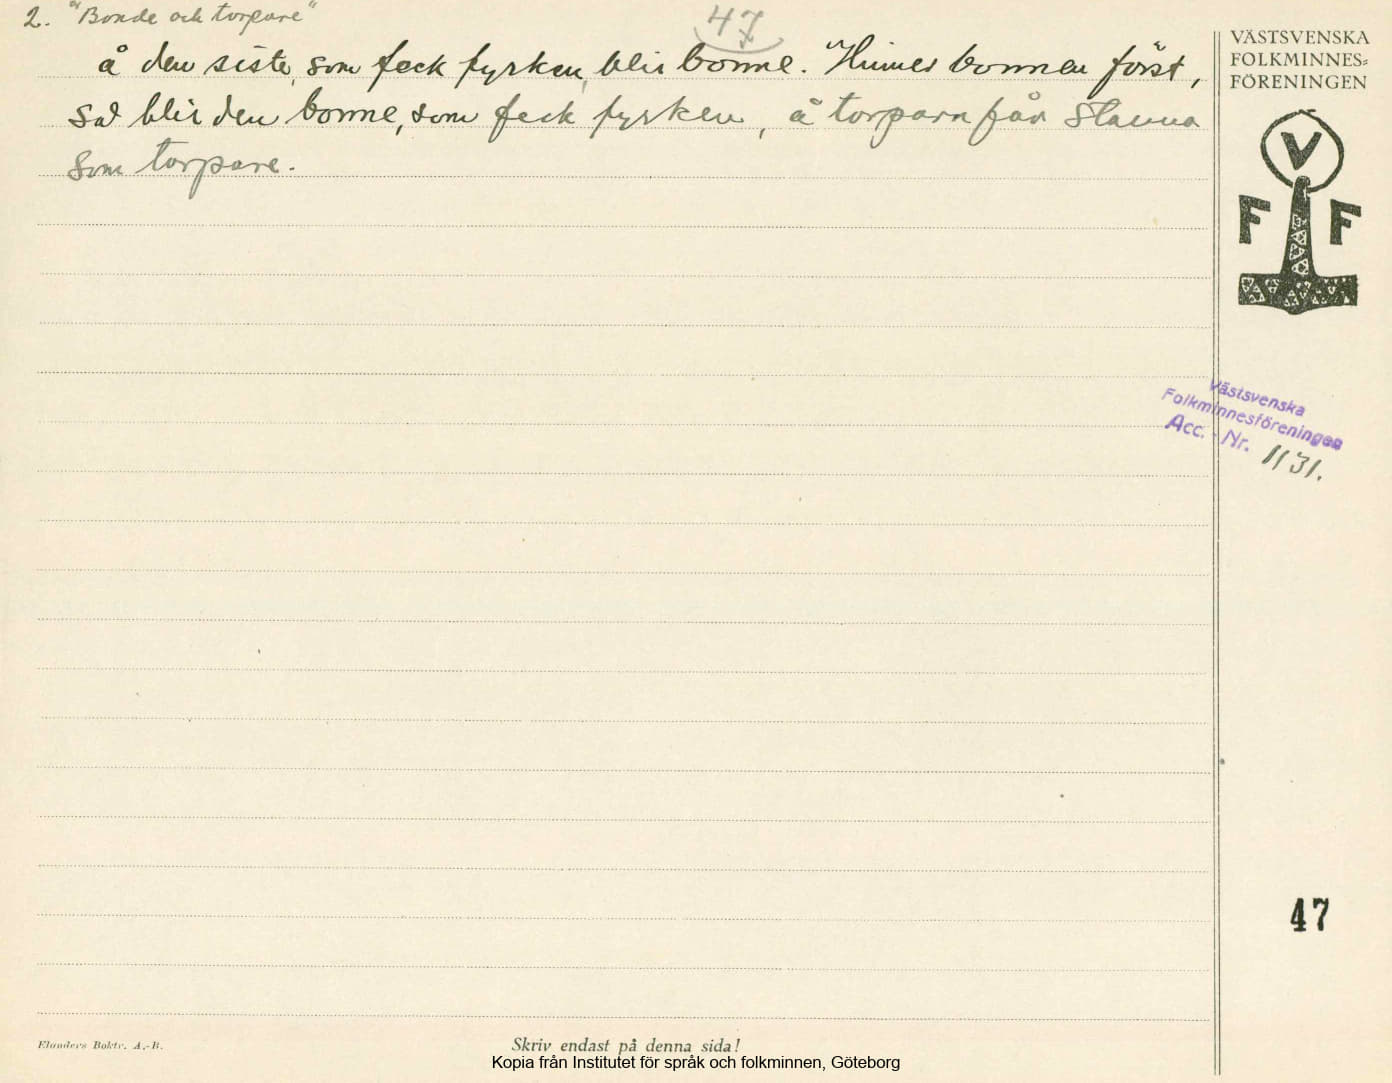 2. "Bonde och torpare"
47
å den siste, som feck fyrken, blir bonne. "Hinner bonnen först,
så blir den bonne, som feck fyrken, å torparn får stanna
som torpare.
VÄSTSVENSKA
FOLKMINNES=
FÖRENINGEN
V
F F
Västsvenska
Folkminnesföreningen
Acc. - Nr. 1131.
47
Elanders Boktr. A.-B.
Skriv endast på denna sida!
Kopia från Institutet för språk och folkminnen, Göteborg